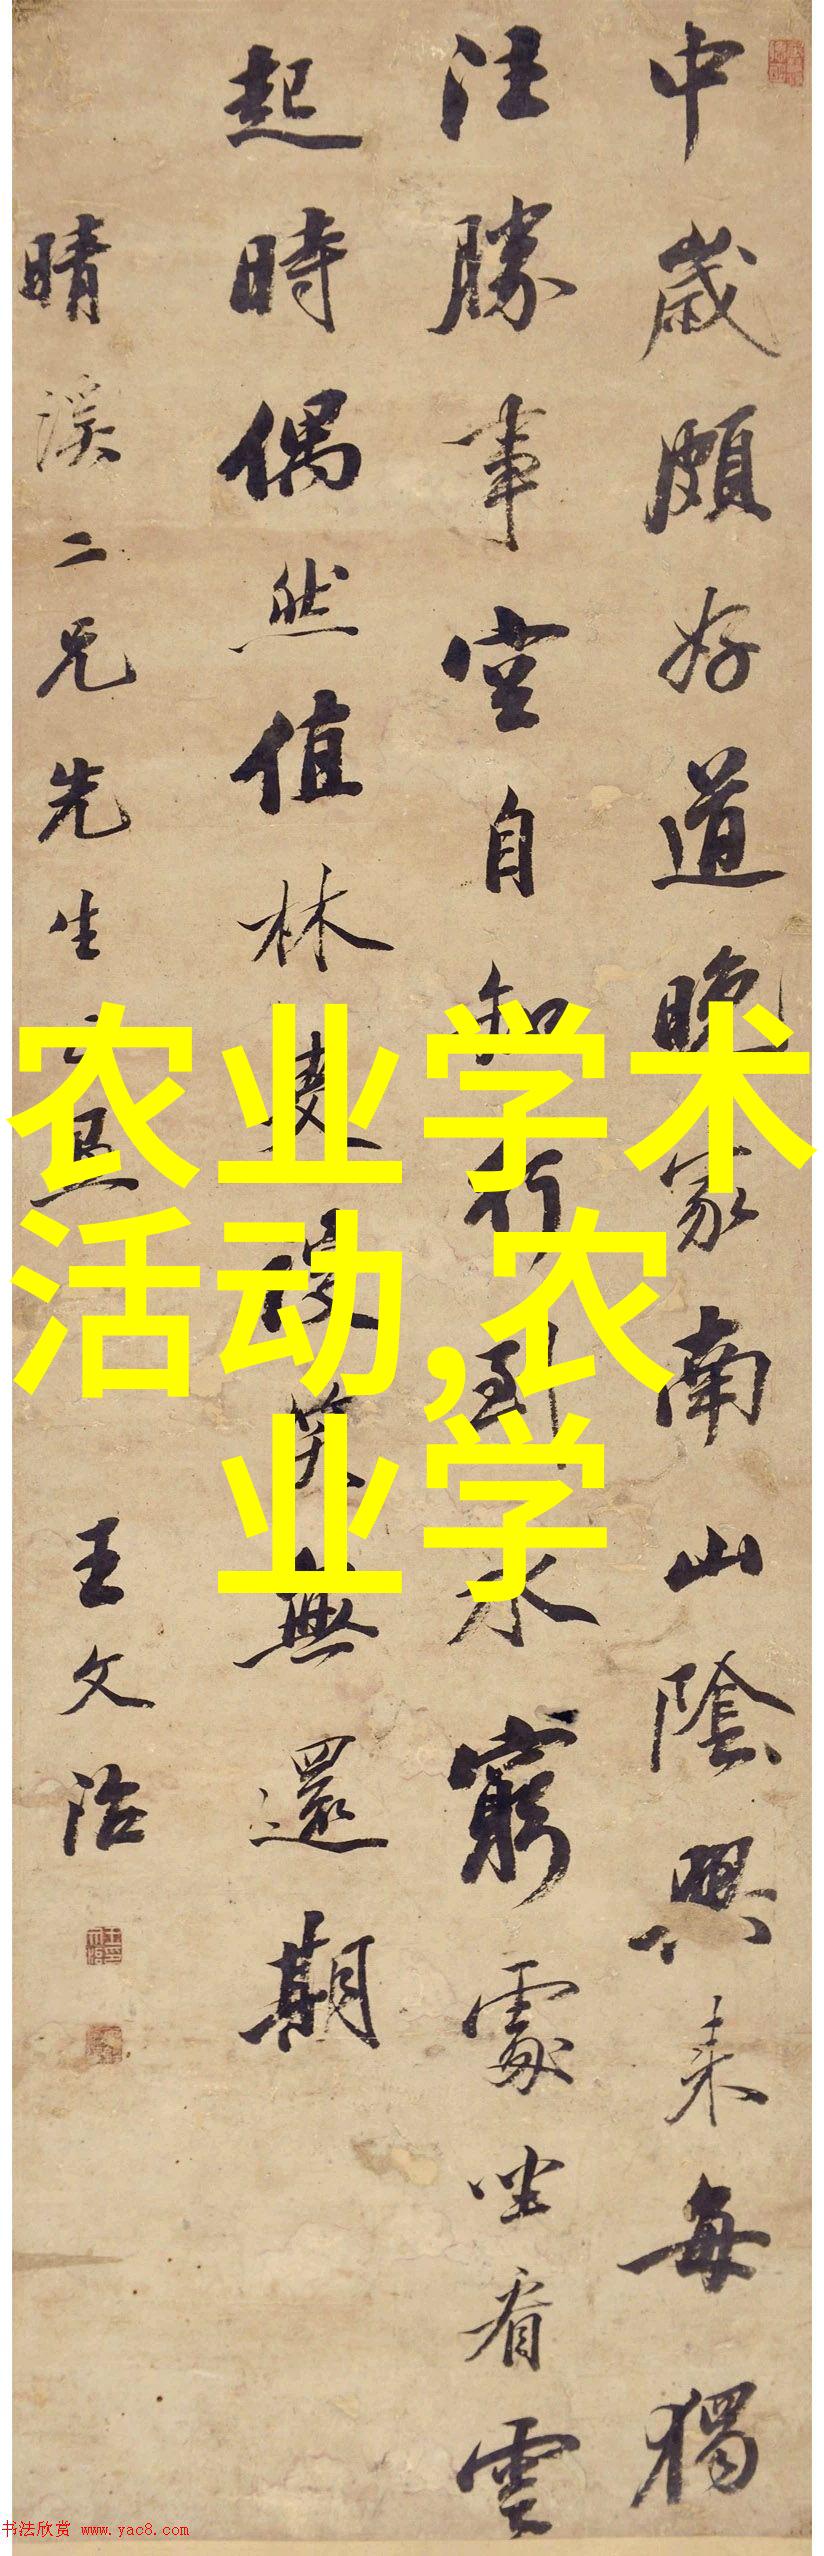 中歲頗好道晚家南山陰興來每獨
往勝事空自知行到水窮處坐看雲
起時偶然值林叟笑無還期
晴溪二兄先生
王文治
农业学术
活动,农
业学
书法欣赏 www.yac8.com